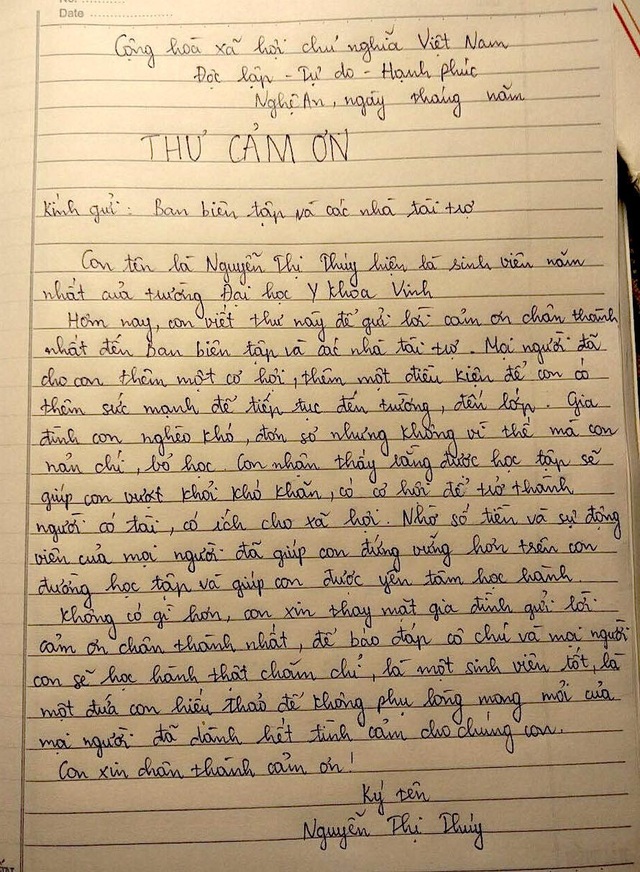 Date
Cộng hoà xã hội chủ nghĩa Việt Nam
Độc lập - Tự do - Hạnh phúc
Nghệ An, ngày tháng năm
THƯ CẢM ƠN
Kính gửi: Ban biên tập và các nhà tài trợ
Con tên là Nguyễn Thị Thúy hiện là sinh viên năm
nhất của trường Đại học Y khoa Vinh
Hôm nay, con viết thư này để gửi lời cảm ơn chân thành
nhất đến ban biên tập và các nhà tài trợ. Mọi người đã
cho con thêm một cơ hội, thêm một điều kiện để con có
thêm sức mạnh để tiếp tục đến trường, đến lớp. Gia
đình con nghèo khó, đơn sơ nhưng không vì thế mà con
nản chí, bỏ học. Con nhận thấy rằng được học tập sẽ
giúp con vượt khỏi khó khăn, có cơ hội để trở thành
người có tài, có ích cho xã hội. Nhờ số tiền và sự động
viên của mọi người đã giúp con đứng vững hơn trên con
đường học tập và giúp con được yên tâm học hành.
Không có gì hơn, con xin thay mặt gia đình gửi lời
cảm ơn chân thành nhất, để báo đáp cô chú và mọi người
con sẽ học hành thật chăm chỉ, là một sinh viên tốt, là
một đứa con hiếu thảo để không phụ lòng mong mỏi của
mọi người đã dành hết tình cảm cho chúng con.
Con xin chân thành cảm ơn!
Ký tên
Nguyễn Thị Thúy